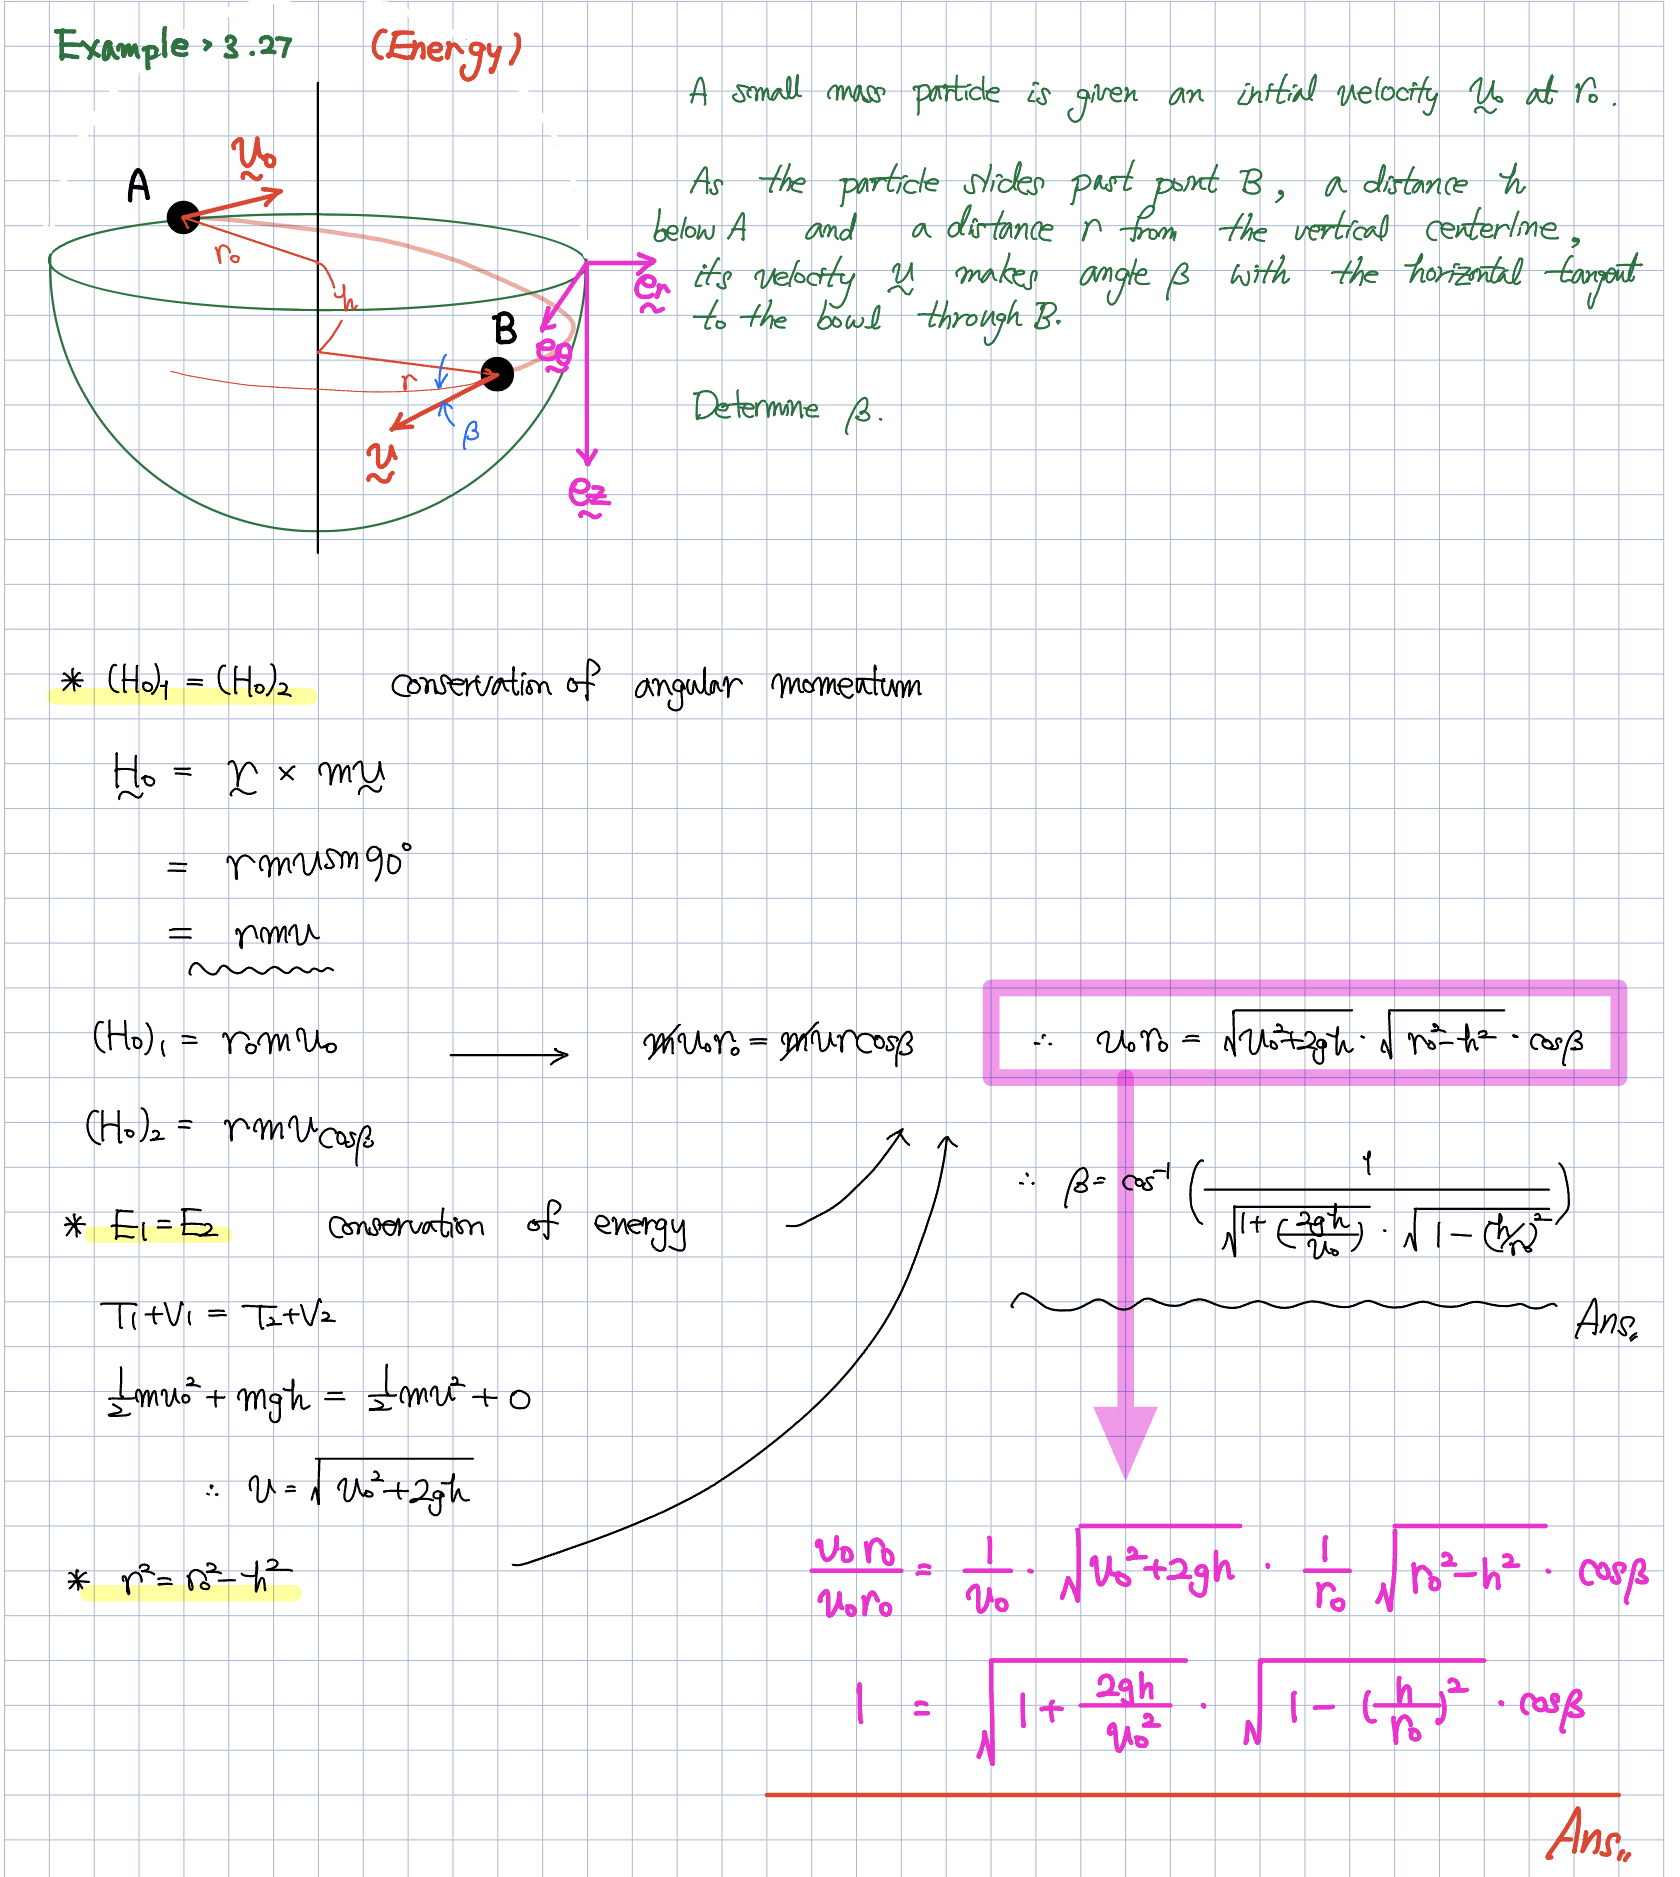 Example > 3.27 (Energy)
A small mass particle is given an initial velocity υ₀ at r₀.
As the particle slides past point B, a distance h
below A and a distance r from the vertical centerline,
its velocity υ makes angle β with the horizontal tangent
to the bowl through B.
Determine β.
A
υ₀
r₀
h
B
r
β
υ
e_r
e_θ
e_z
* (H₀)₁ = (H₀)₂ conservation of angular momentum
H₀ = r × mυ
= rmυsin90°
= rmυ
(H₀)₁ = r₀mυ₀ → mυ₀r₀ = mυrcosβ
∴ υ₀r₀ = √(υ₀²+2gh) · √(r₀²-h²) · cosβ
(H₀)₂ = rmυcosβ
∴ β = cos⁻¹ (1 / (√(1+(2gh/υ₀)) · √(1-(h/r₀)²)))
Ans.
* E₁ = E₂ conservation of energy
T₁+V₁ = T₂+V₂
½mυ₀² + mgh = ½mυ² + 0
∴ υ = √(υ₀²+2gh)
* r² = r₀²-h²
υ₀r₀/υ₀r₀ = 1/υ₀ · √(υ₀²+2gh) · 1/r₀ √(r₀²-h²) · cosβ
1 = √(1 + 2gh/υ₀²) · √(1 - (h/r₀)²) · cosβ
Ans.